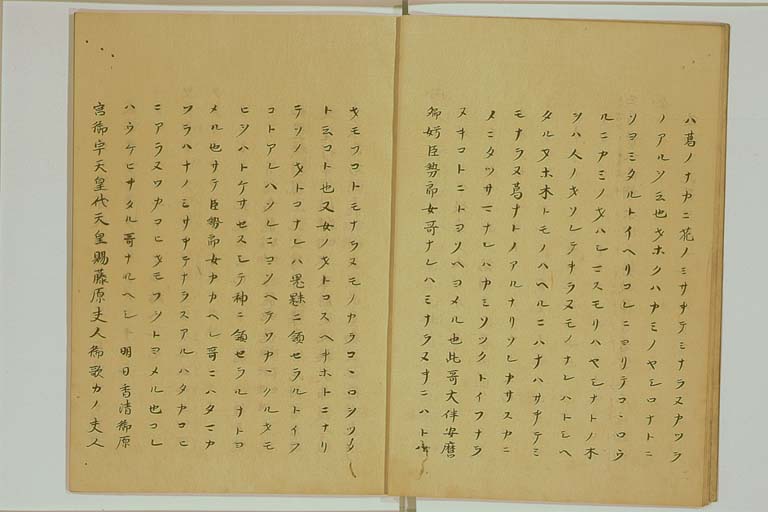 ハ葛ノナカニ花ノミサキテミナラヌカツラ
ノアルヲ云也オホクハカミノヤシロナトニ
ソヨミタルトイヘリコレニヨリテコヽロウ
ルニカミノキハシニスモリハヤシナトノ木
ツハ人ノオソレテキラヌモノナレハトシヘ
タル夕ホ木トモノハヘルニハナハサキテミ
モナラヌ葛ナトノアルナリソレヲサスカニ
メニタツサマナレハカミソツクトイフナラ
ヌキコトニトヨソヘヨメル也此哥大伴安麿
卿娉臣勢郎女哥ナレハミナラヌキニハト
オモフコトモナラヌモノカラコヽロシツメ
ト云コト也又女ノオトコスヘキホトニナリ
テソノオトコナレハ鬼魅ニ領セラルトイフ
コトアレハソレニヨソヘテワカヽルオモ
ヒシハトケサセスシテ神ニ領セラルナトヨ
メル也サテ臣勢郎女カカヘシ哥ニハタマカ
ツラハナノミサキテナラスアルハタカコヒ
ニアラヌワカコヒオモフヲトヨメル也コレ
ハウケヒキタル哥ナルヘシ 明日香清御原
宮御宇天皇代天皇賜藤原夫人御歌カノ夫人